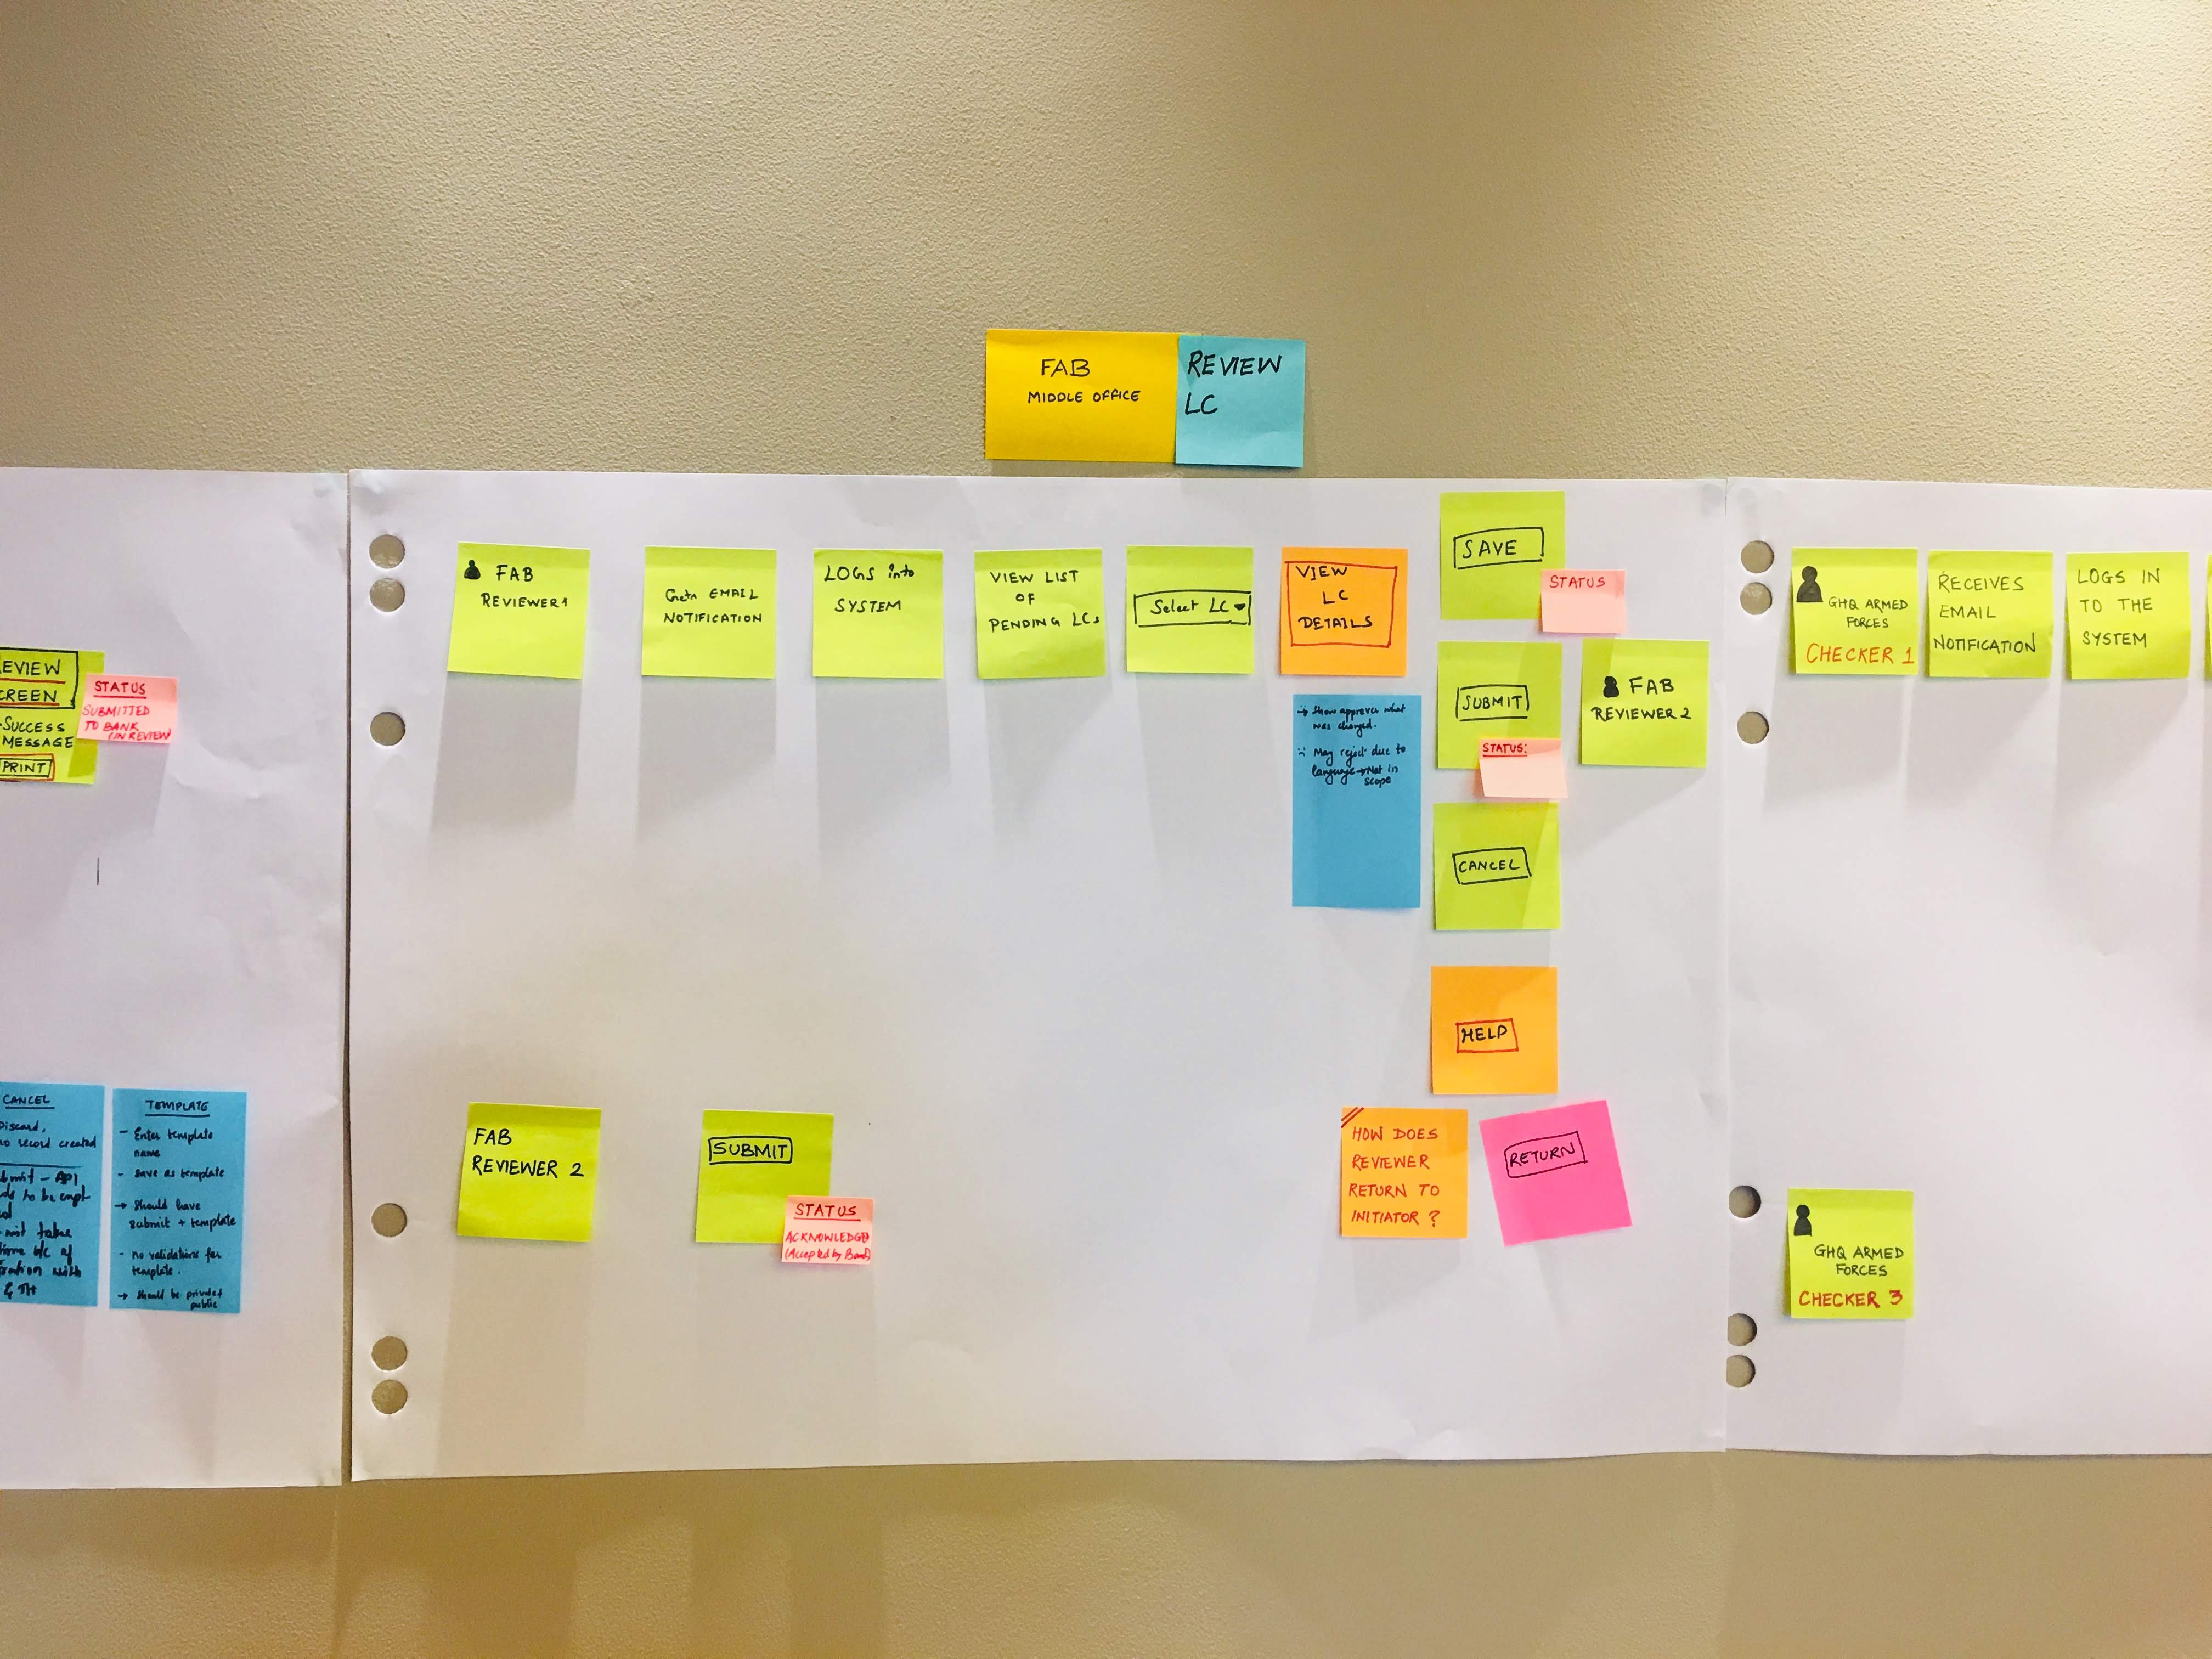 FAB
MIDDLE OFFICE
REVIEW
LC
EVIEW
CREEN
SUCCESS
MESSAGE
PRINT
STATUS
SUBMITTED
TO BANK
(IN REVIEW)
CANCEL
Discard,
no record created
bmit - API
ds to be
not take
time b/c of
ration with
& TH
TEMPLATE
- Enter template
name
- save as template
→ Should have
submit + template
- no validations for
template.
→ should be private
public
FAB
REVIEWER 1
EMAIL
NOTIFICATION
LOGS into
SYSTEM
VIEW LIST
OF
PENDING LCs
Select LC
VIEW
LC
DETAILS
→ Show approver what
was changed.
May reject due to
language → Not in
scope
SAVE
STATUS
SUBMIT
STATUS:
FAB
REVIEWER 2
CANCEL
HELP
HOW DOES
REVIEWER
RETURN TO
INITIATOR ?
RETURN
FAB
REVIEWER 2
SUBMIT
STATUS
ACKNOWLEDGD
(Accepted by Bank)
GHQ ARMED
FORCES
CHECKER 1
RECEIVES
EMAIL
NOTIFICATION
LOGS IN
TO THE
SYSTEM
GHQ ARMED
FORCES
CHECKER 3